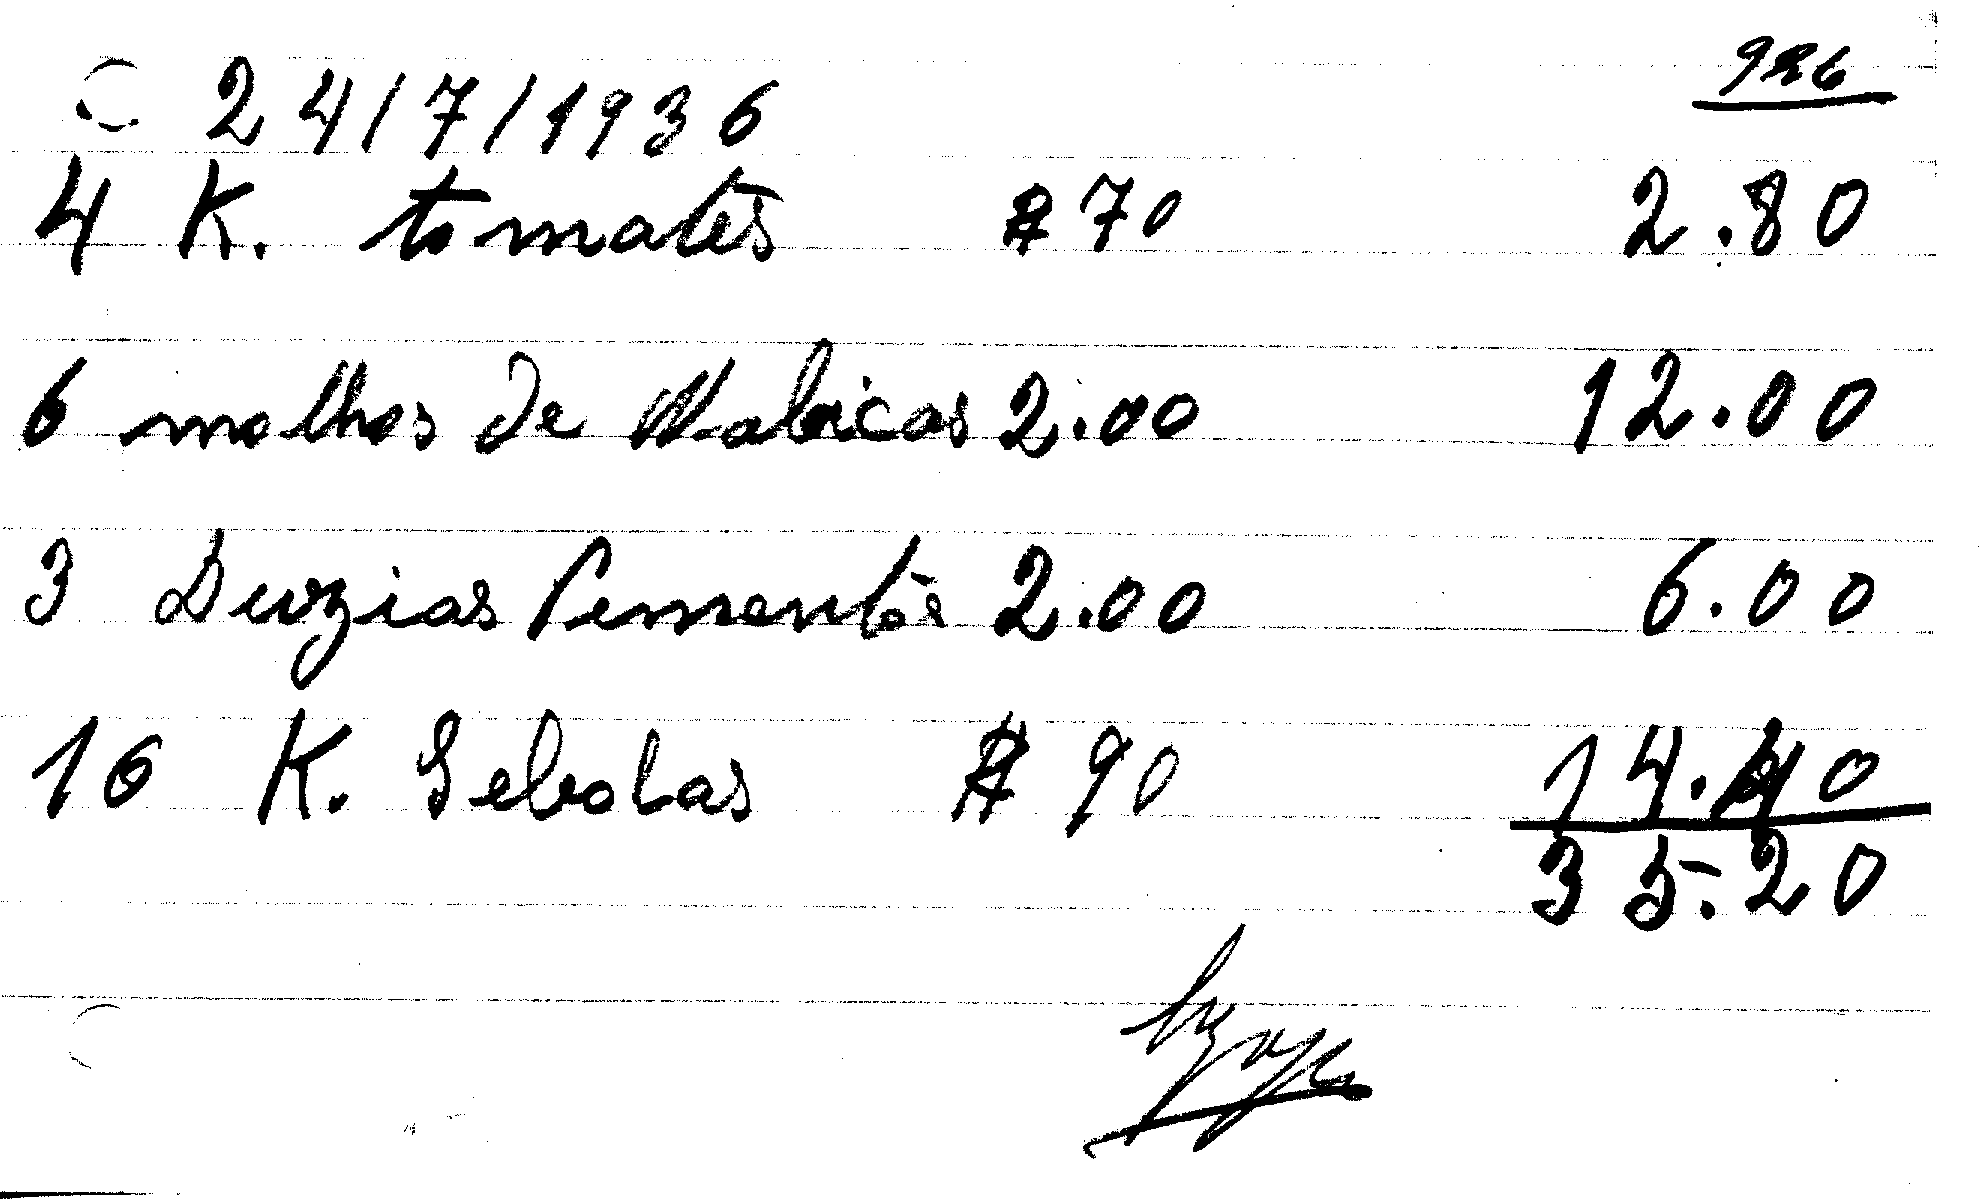 986
24/7/1936
4 K. tomates $70 2.80
6 molhos de Nabicas 2.00 12.00
3 Duzias Pementos 2.00 6.00
16 K. Sebolas $90 14.40
35.20